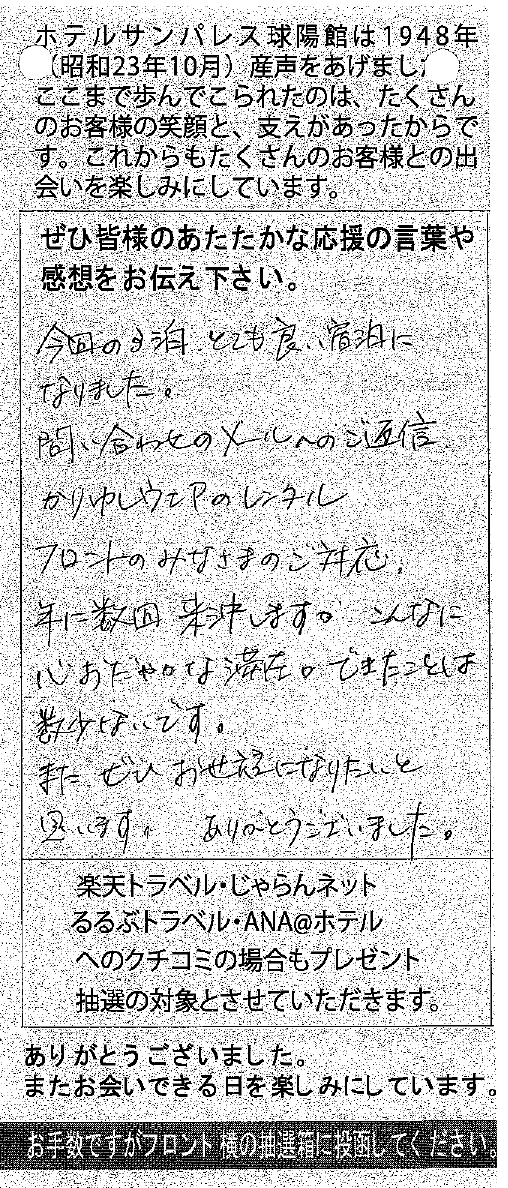 ホテルサンパレス球陽館は1948年
（昭和23年10月）産声をあげました
ここまで歩んでこられたのは、たくさん
のお客様の笑顔と、支えがあったからで
す。これからもたくさんのお客様との出
会いを楽しみにしています。
ぜひ皆様のあたたかな応援の言葉や
感想をお伝え下さい。
今回の3泊、とても良い宿泊に
なりました。
問い合わせのメールへのご返信、
かりゆしウエアのレンタル
フロントのみなさまのご対応、
年に数回来沖しますが、こんなに
心おだやかな滞在ができたことは
数少ないです。
また、ぜひお世話になりたいと
思います。ありがとうございました。
楽天トラベル・じゃらんネット
るるぶトラベル・ANA@ホテル
へのクチコミの場合もプレゼント
抽選の対象とさせていただきます。
ありがとうございました。
またお会いできる日を楽しみにしています。
お手数ですがフロント横の抽選箱に投函してください。